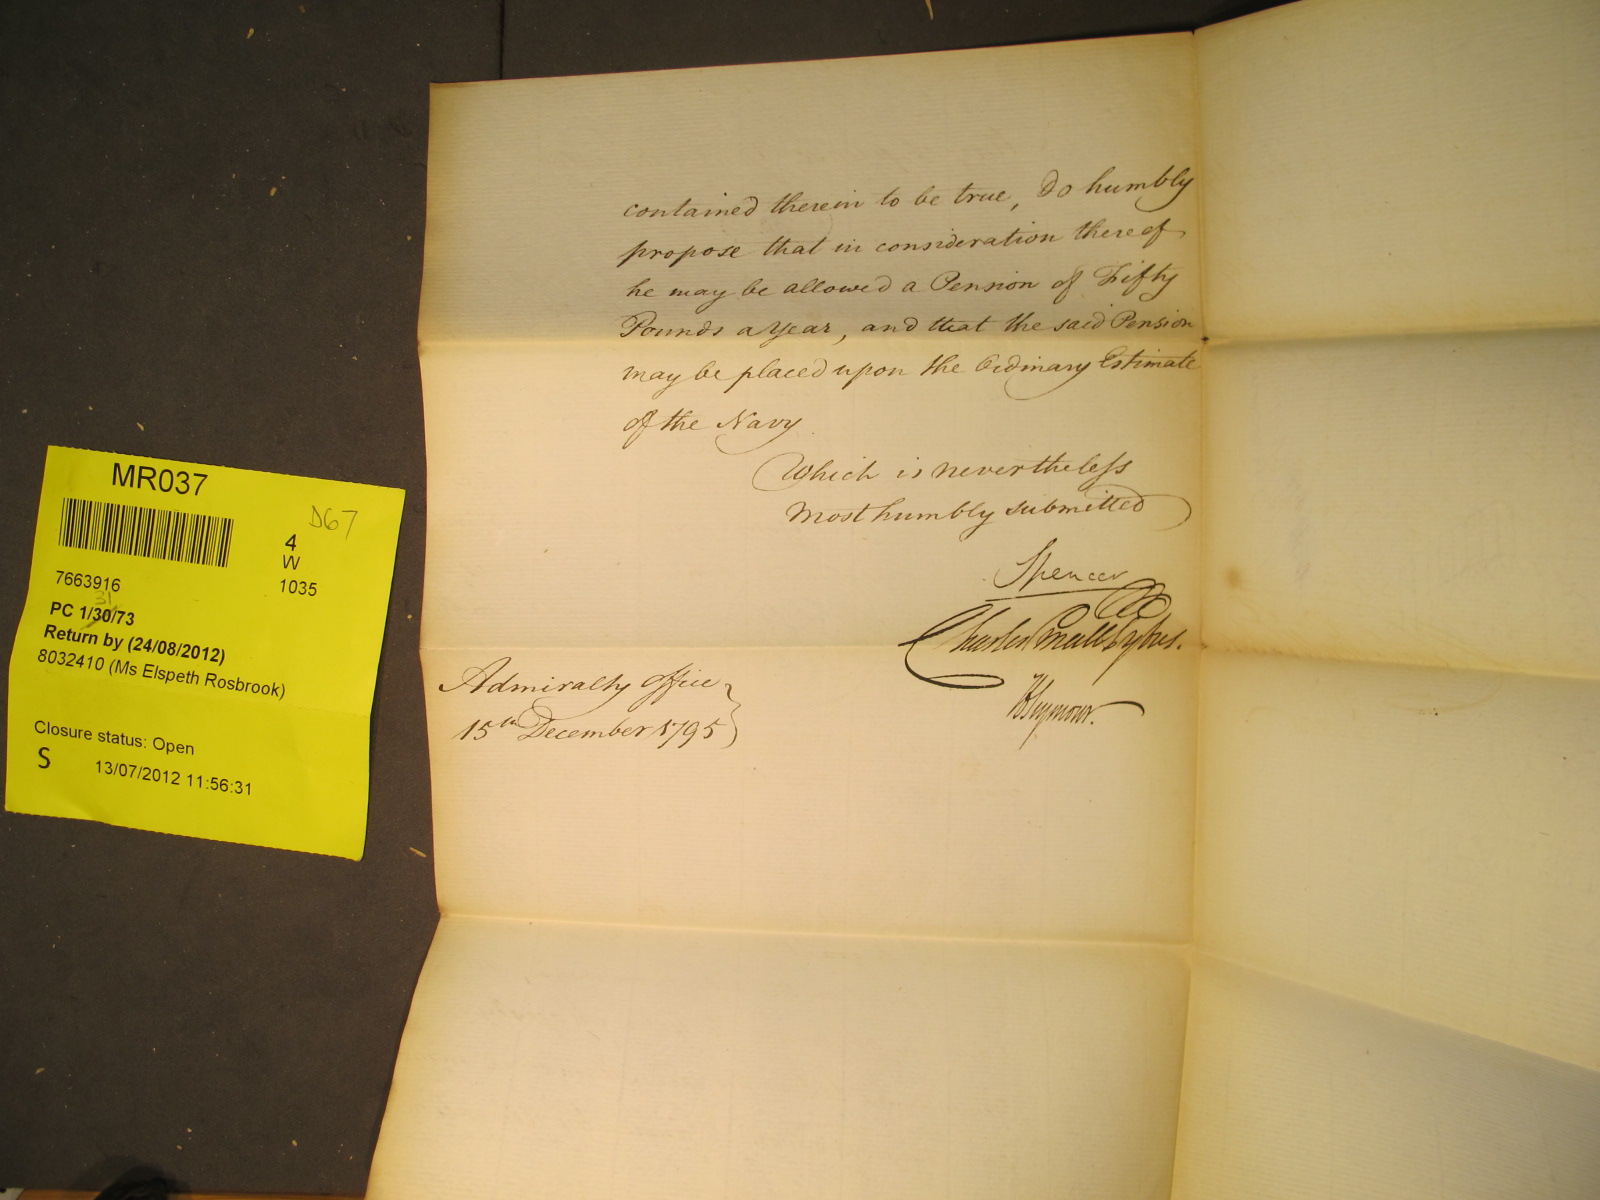 contained therein to be true, Do humbly
propose that in consideration thereof
he may be allowed a Pension of Fifty
Pounds a Year, and that the said Pension
may be placed upon the Ordinary Estimate
of the Navy.
Which is nevertheless
most humbly submitted
Spencer
Charles
H Seymour.
Admiralty Office
15th December 1795
MR037
D67
4
W
1035
7663916
31
PC 1/30/73
Return by (24/08/2012)
8032410 (Ms Elspeth Rosbrook)
Closure status: Open
S
13/07/2012 11:56:31